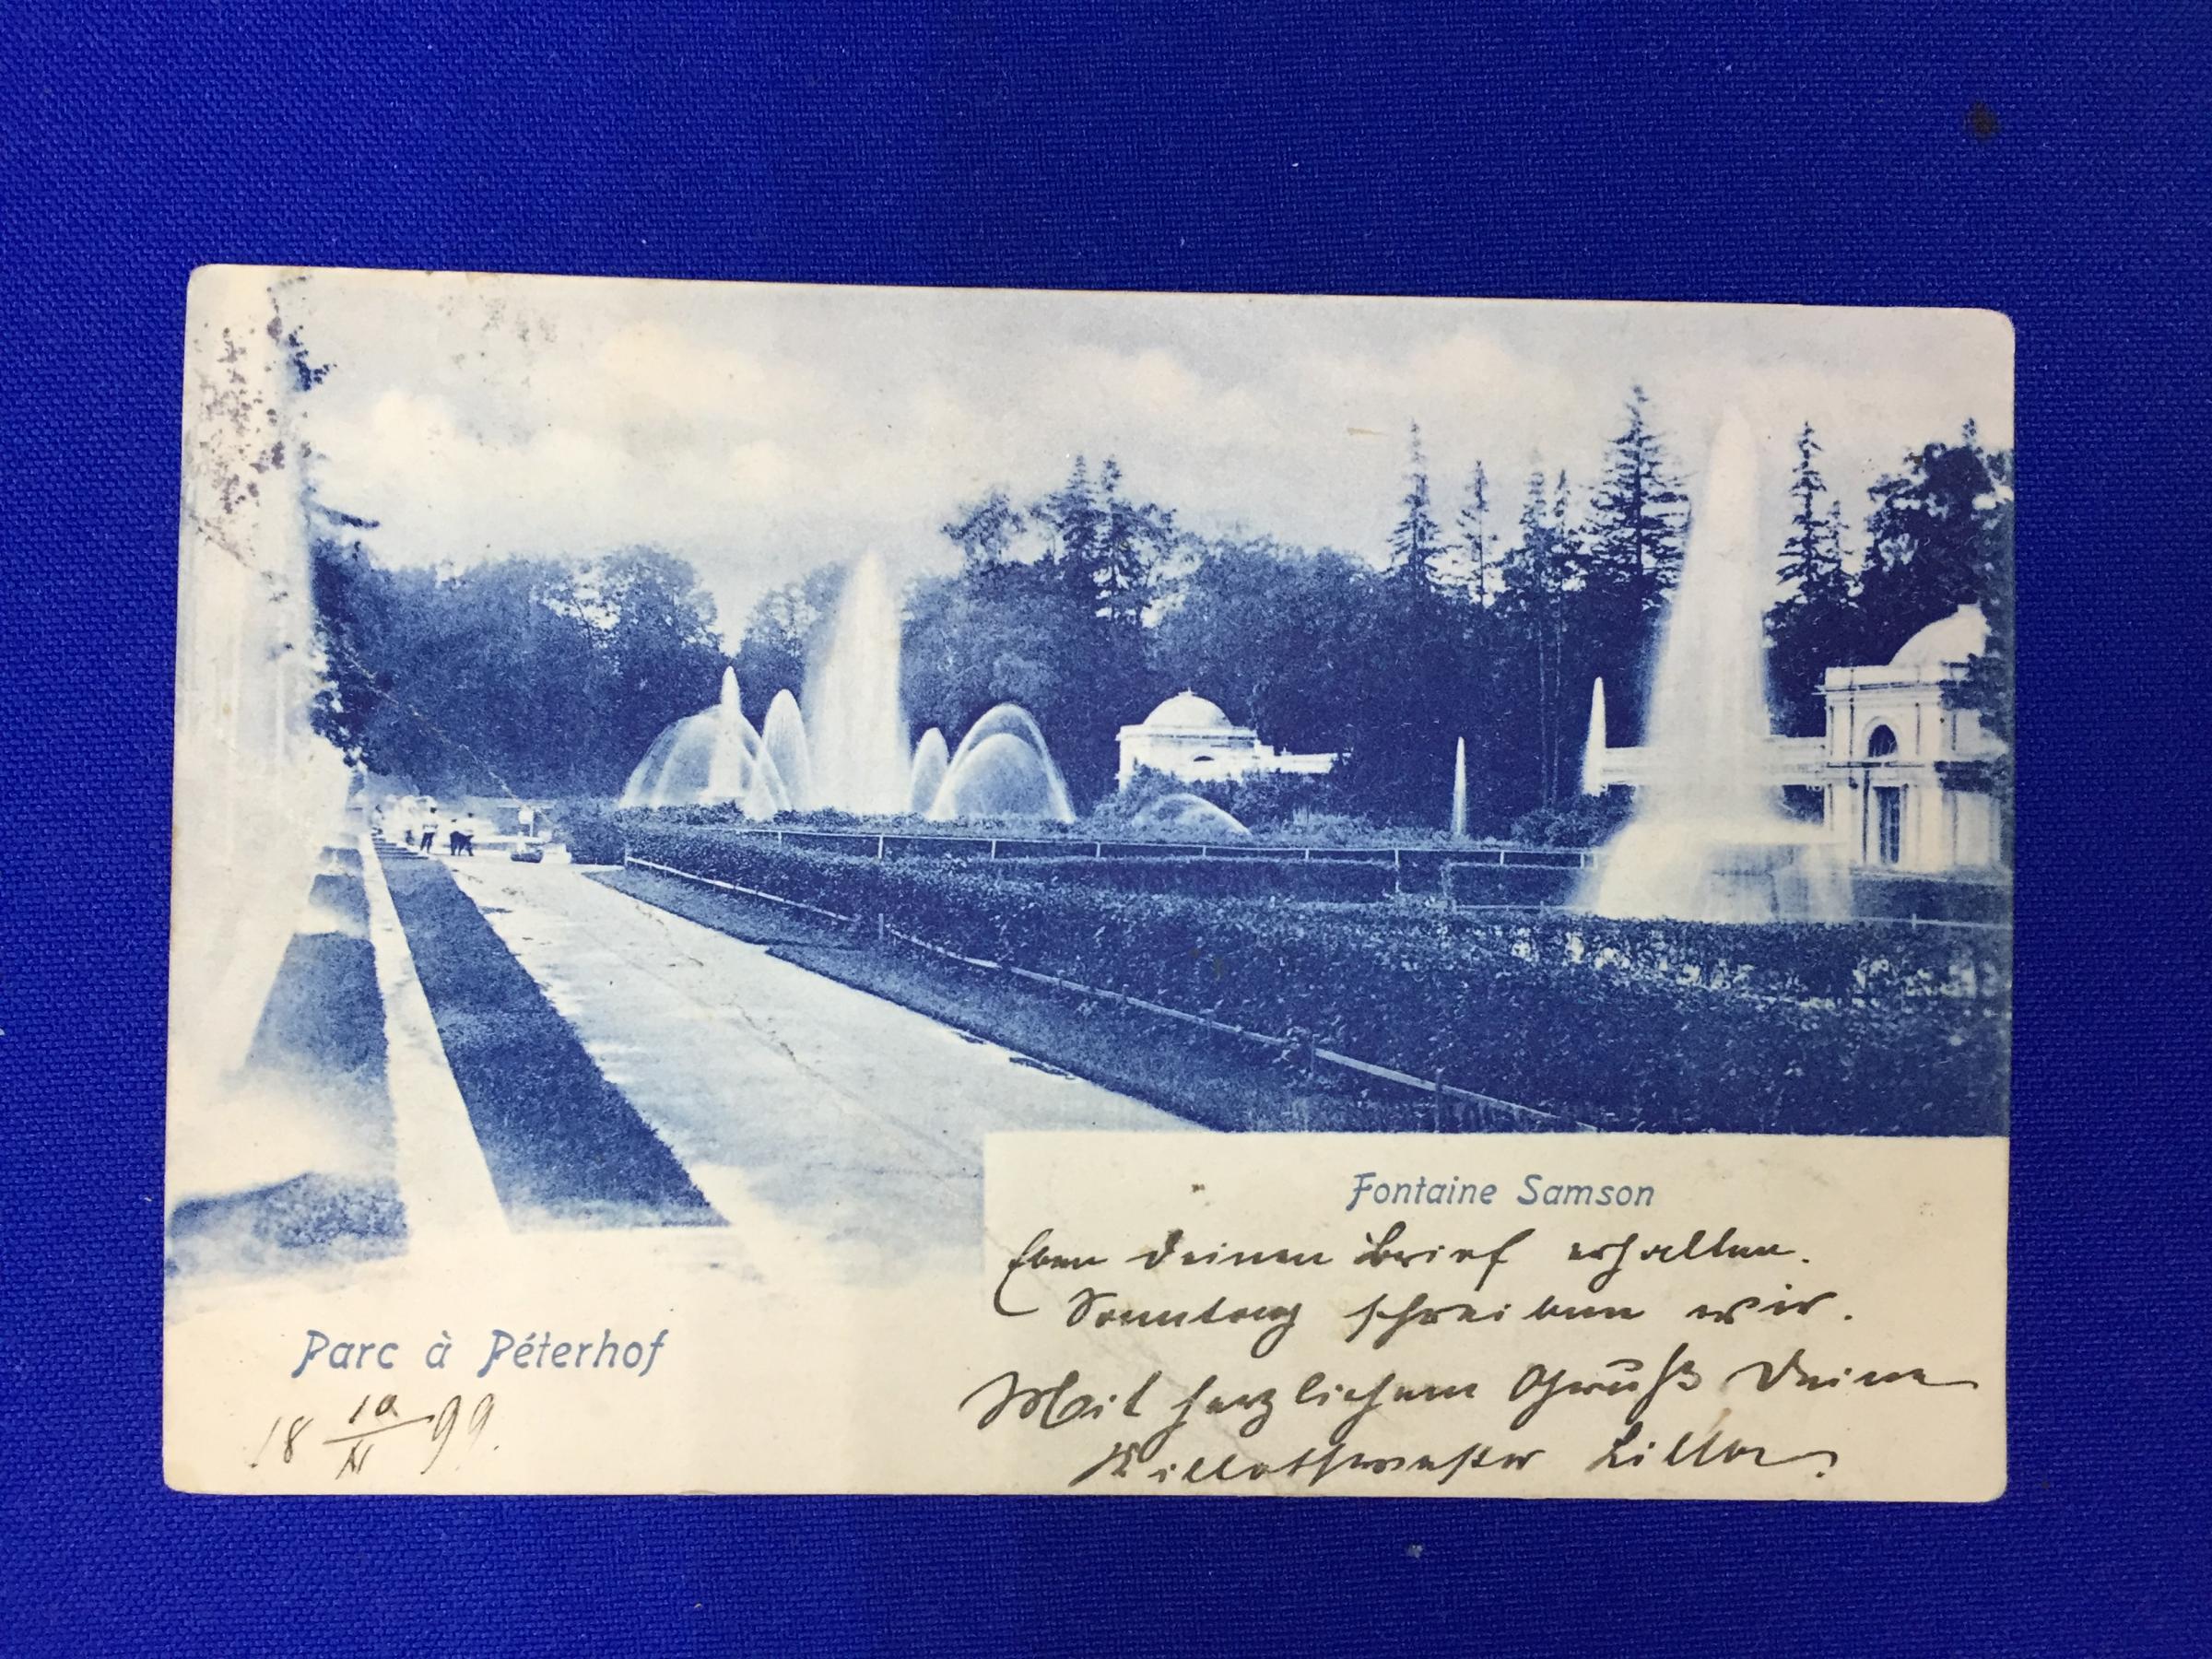 Fontaine Samson
Eben Deinen Brief erhalten.
Sonntag schreiben wir.
Parc à Péterhof
Mit herzlichem Gruß Deine
18 10/XI 99.